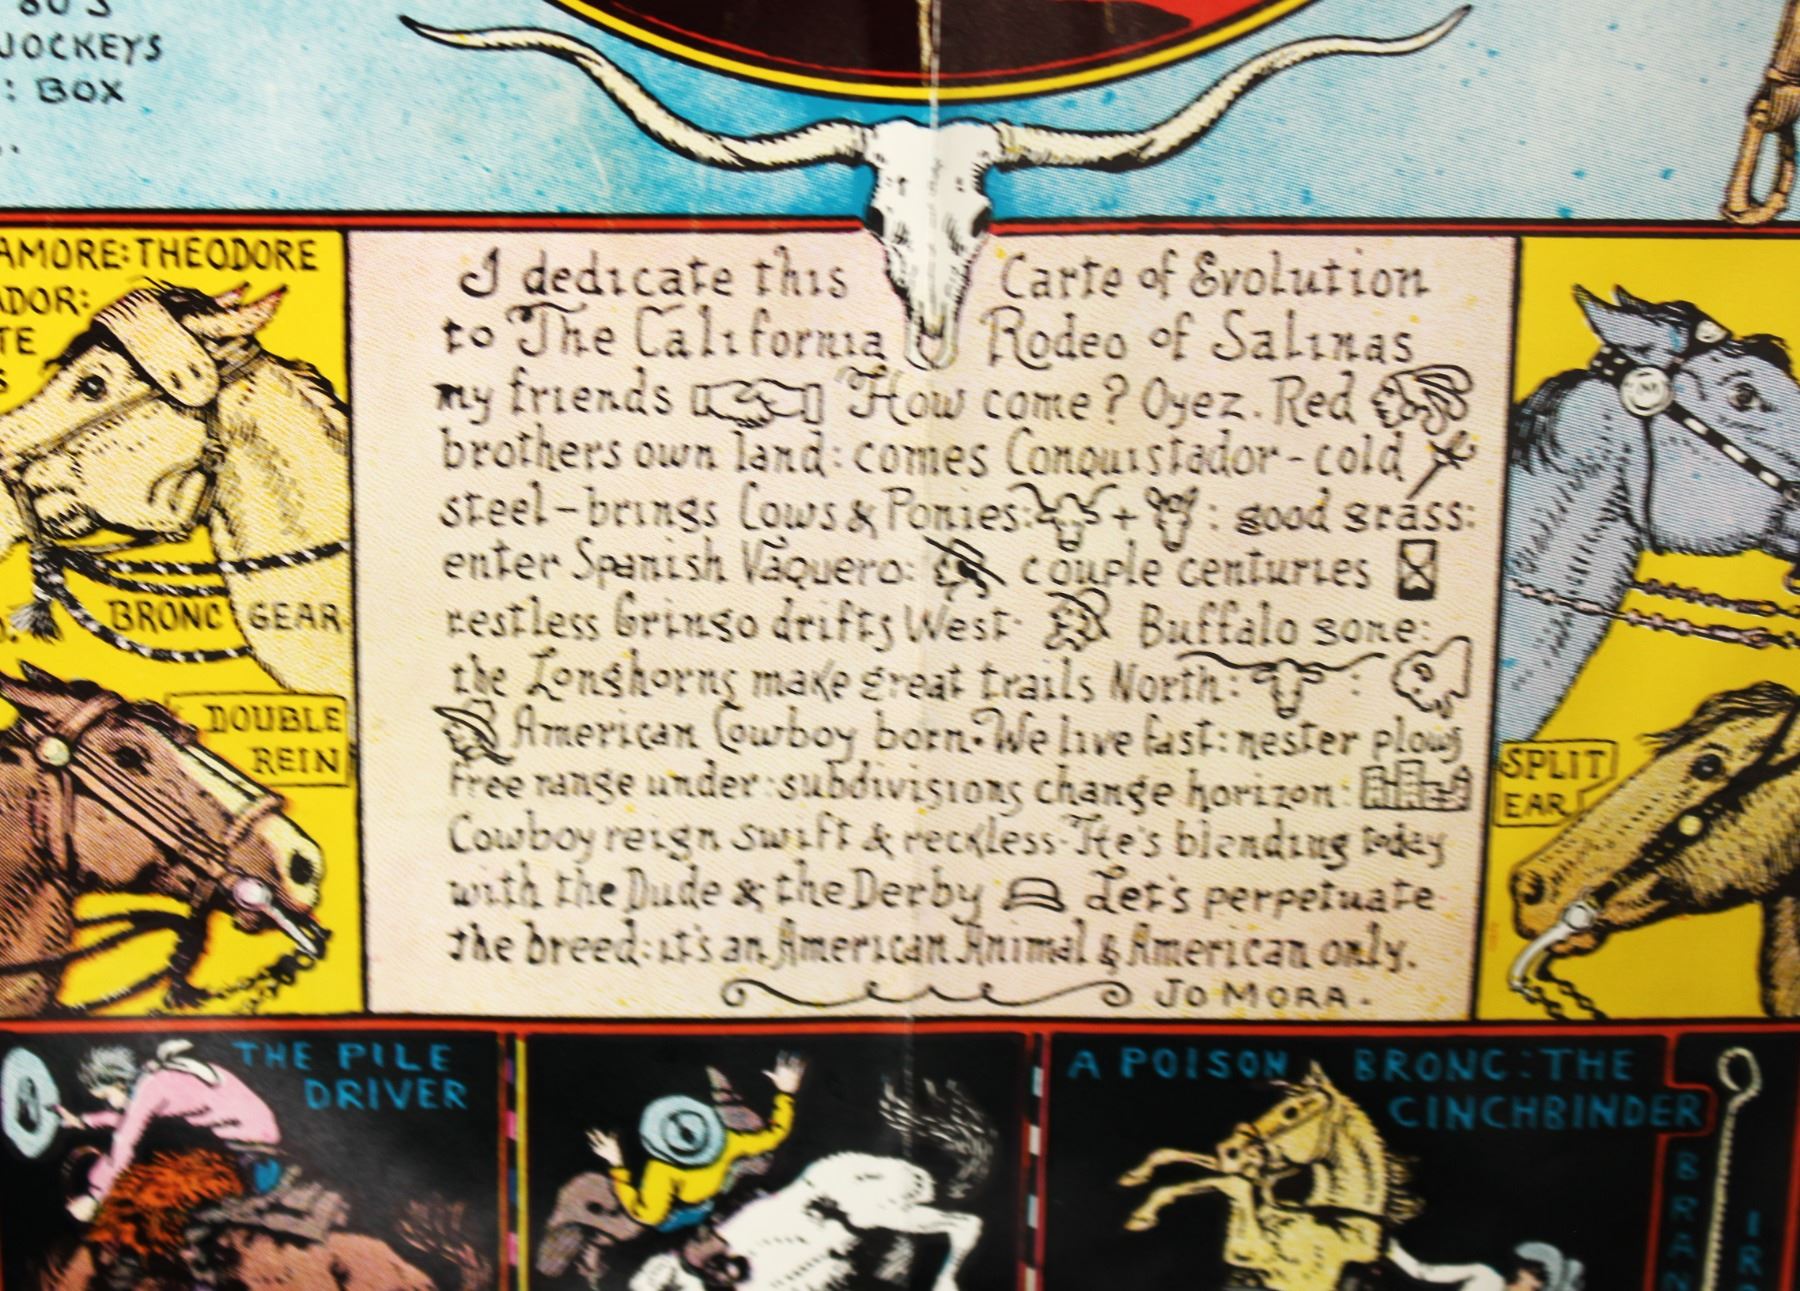 80'S
JOCKEYS
: BOX
AMORE: THEODORE
ADOR:
BRONC GEAR
DOUBLE
REIN
I dedicate this Carte of Evolution
to The California Rodeo of Salinas
my friends How come? Oyez. Red
brothers own land: comes Conquistador-cold
steel-brings Cows & Ponies: + : good grass:
enter Spanish Vaquero: couple centuries
restless Gringo drifts West· Buffalo gone:
the Longhorns make great trails North: :
American Cowboy born. We live fast: nester plows
free range under: subdivisions change horizon:
Cowboy reign swift & reckless· He's blending today
with the Dude & the Derby Let's perpetuate
the breed: it's an American Animal & American only.
JO MORA.
SPLIT
EAR
THE PILE
DRIVER
A POISON BRONC: THE
CINCHBINDER
BRAN